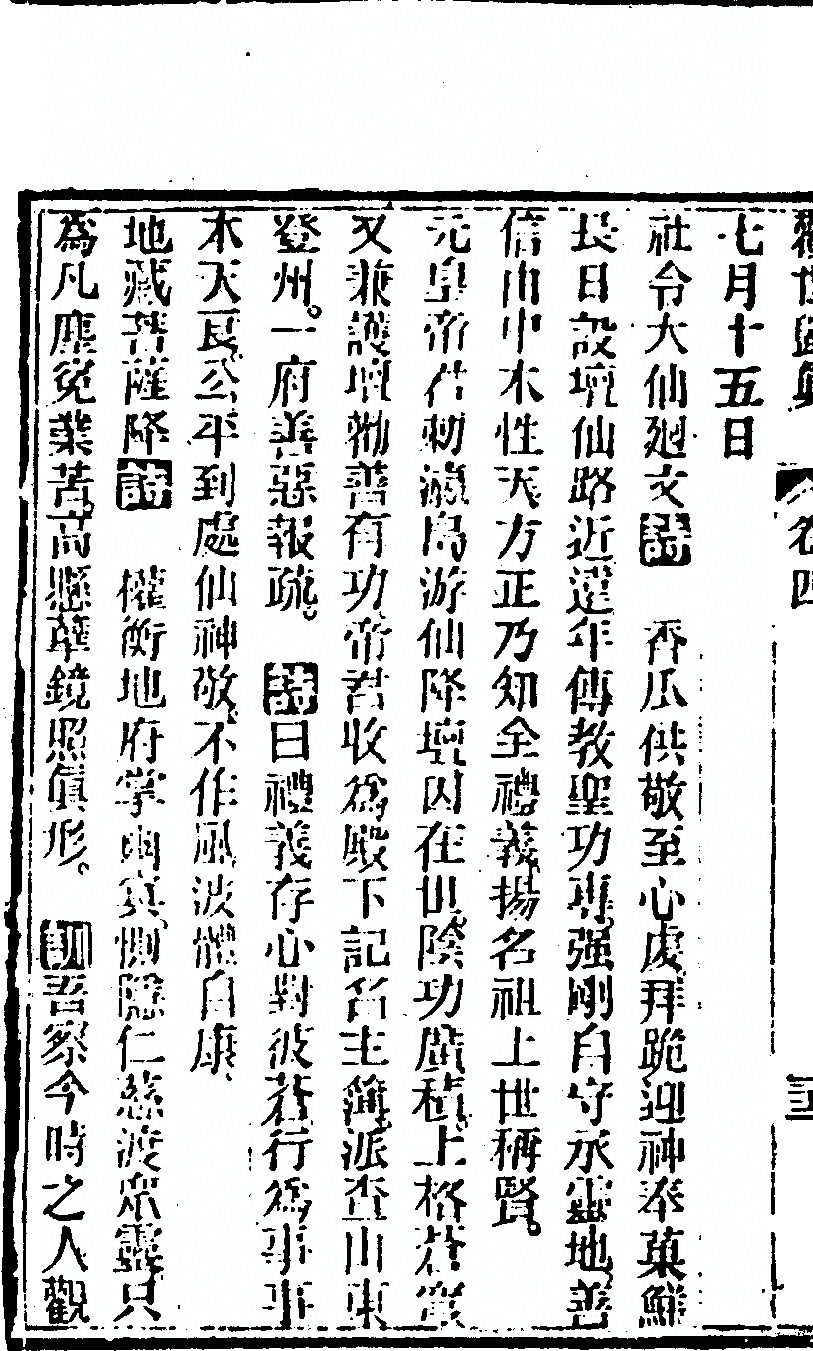 卷四
七月十五日
社令大仙廻文詩　香瓜供敬至心虔拜跪迎神奉菓鮮
長日設壇仙路近遠年傳教聖功專强剛自守承靈地善
信由中木性天方正乃知全禮義揚名祖上世稱賢。
元皇帝君勅瀛島游仙降壇因在世陰功廣積上格蒼穹
又兼護壇勸善有功帝君收爲殿下記名主簿派查山東
登州。一府善惡報疏。詩曰禮義存心對彼蒼行爲事事
木天良公平到處仙神敬不作風波體自康
地藏菩薩降詩　權衡地府掌幽冥惻隱仁慈渡衆靈只
爲凡塵寃業苦高懸孽鏡照眞形。　訓吾察今時之人觀